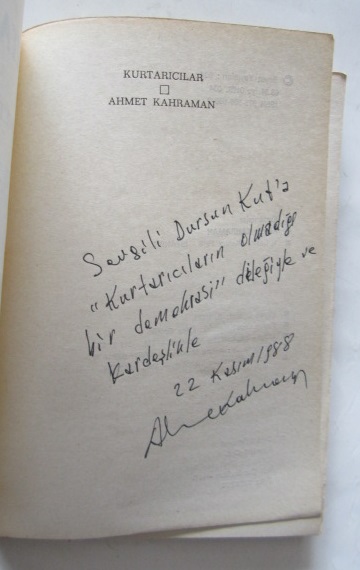 KURTARICILAR
AHMET KAHRAMAN
Sevgili Dursun Kut'a
"Kurtarıcıların olmadığı
bir demokrasi" dileğiyle ve
kardeşlikle
22 Kasım 1988